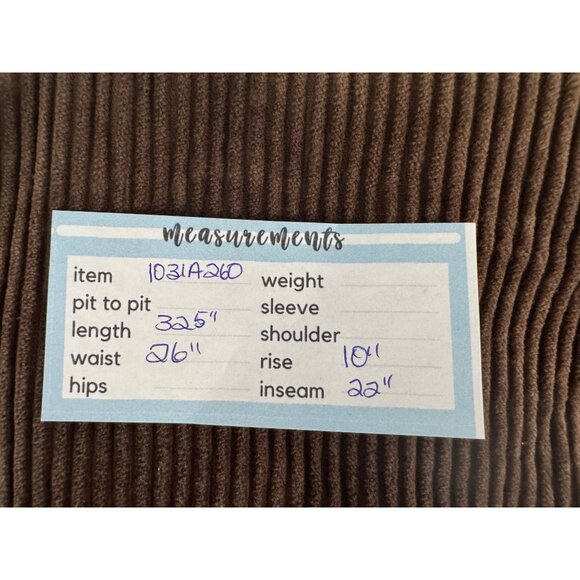 measurements
item 1031A260
pit to pit
length 32.5"
waist 26"
hips
weight
sleeve
shoulder
rise 10"
inseam 22"